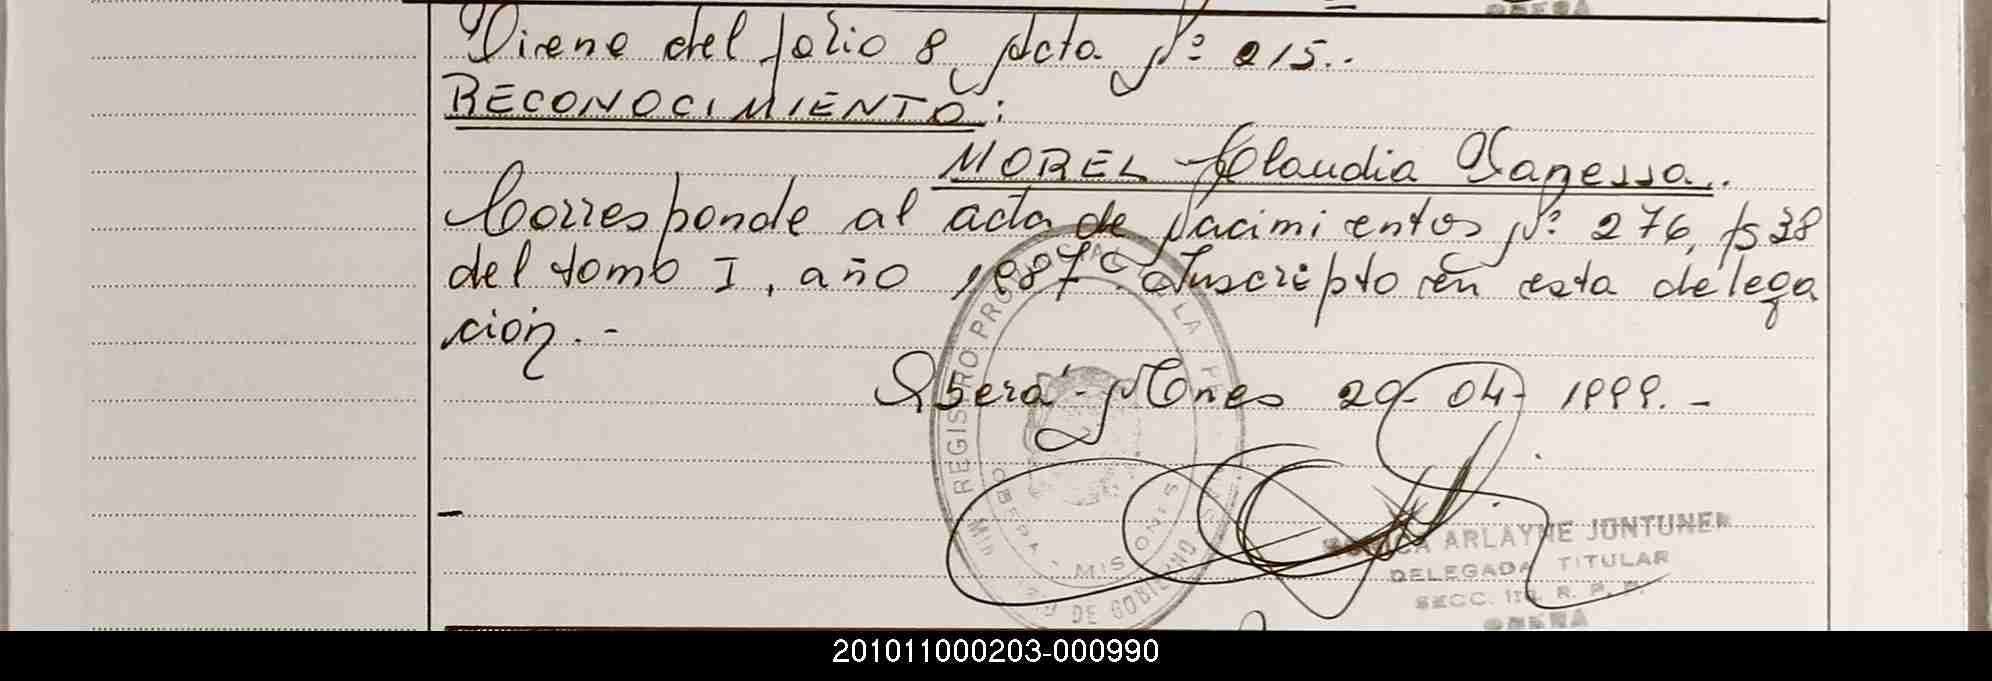 Viene del folio 8 Acta Nº 215..
RECONOCIMIENTO:
MOREL Claudia Vanessa..
Corresponde al acta de Nacimientos Nº 276, fs 38
del tomo I, año 1987. Inscripto en esta delega
ción.-
Oberá-Mnes 29-04-1999.-
REGISTRO PROVINCIAL DE LA
OBERA - MISIONES
DE GOBIERNO
ARLAYNE JONTUNEN
DELEGADA TITULAR
SECC. 1ra. R. P. P.
OBERA
201011000203-000990